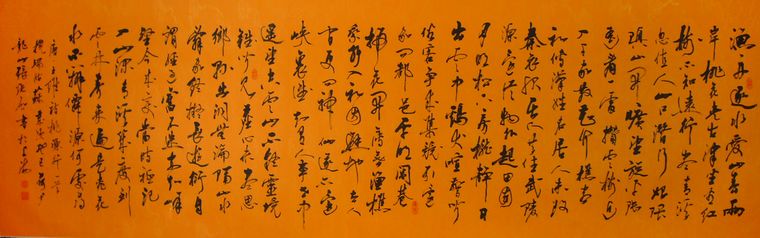 漁舟逐水愛山春兩
岸桃花夾古津坐看紅
樹不知遠行盡青溪
忽值人山口潛行始隈
隩山開曠望旋平陸
遙看一處攢雲樹近入
千家散花竹樵客
初傳漢姓名居人未改
秦衣服居人共住武陵
源還從物外起田園
月明松下房櫳靜日
出雲中鷄犬喧驚聞
俗客爭來集競引還
家問都邑平明閭巷
掃花開薄暮漁樵
乘水入初因避地去人
間更問神仙遂不還
峽裏誰知有人事世中
遙望空雲山不疑靈境
難聞見塵心未盡思
鄉縣出洞無論隔山水
辭家終擬長遊衍自
謂經過舊不迷安知峰
壑今來變當時只記
入山深青溪幾度到
雲林春來遍是桃花
水不辨僊源何處尋
唐王維詩桃源行一首